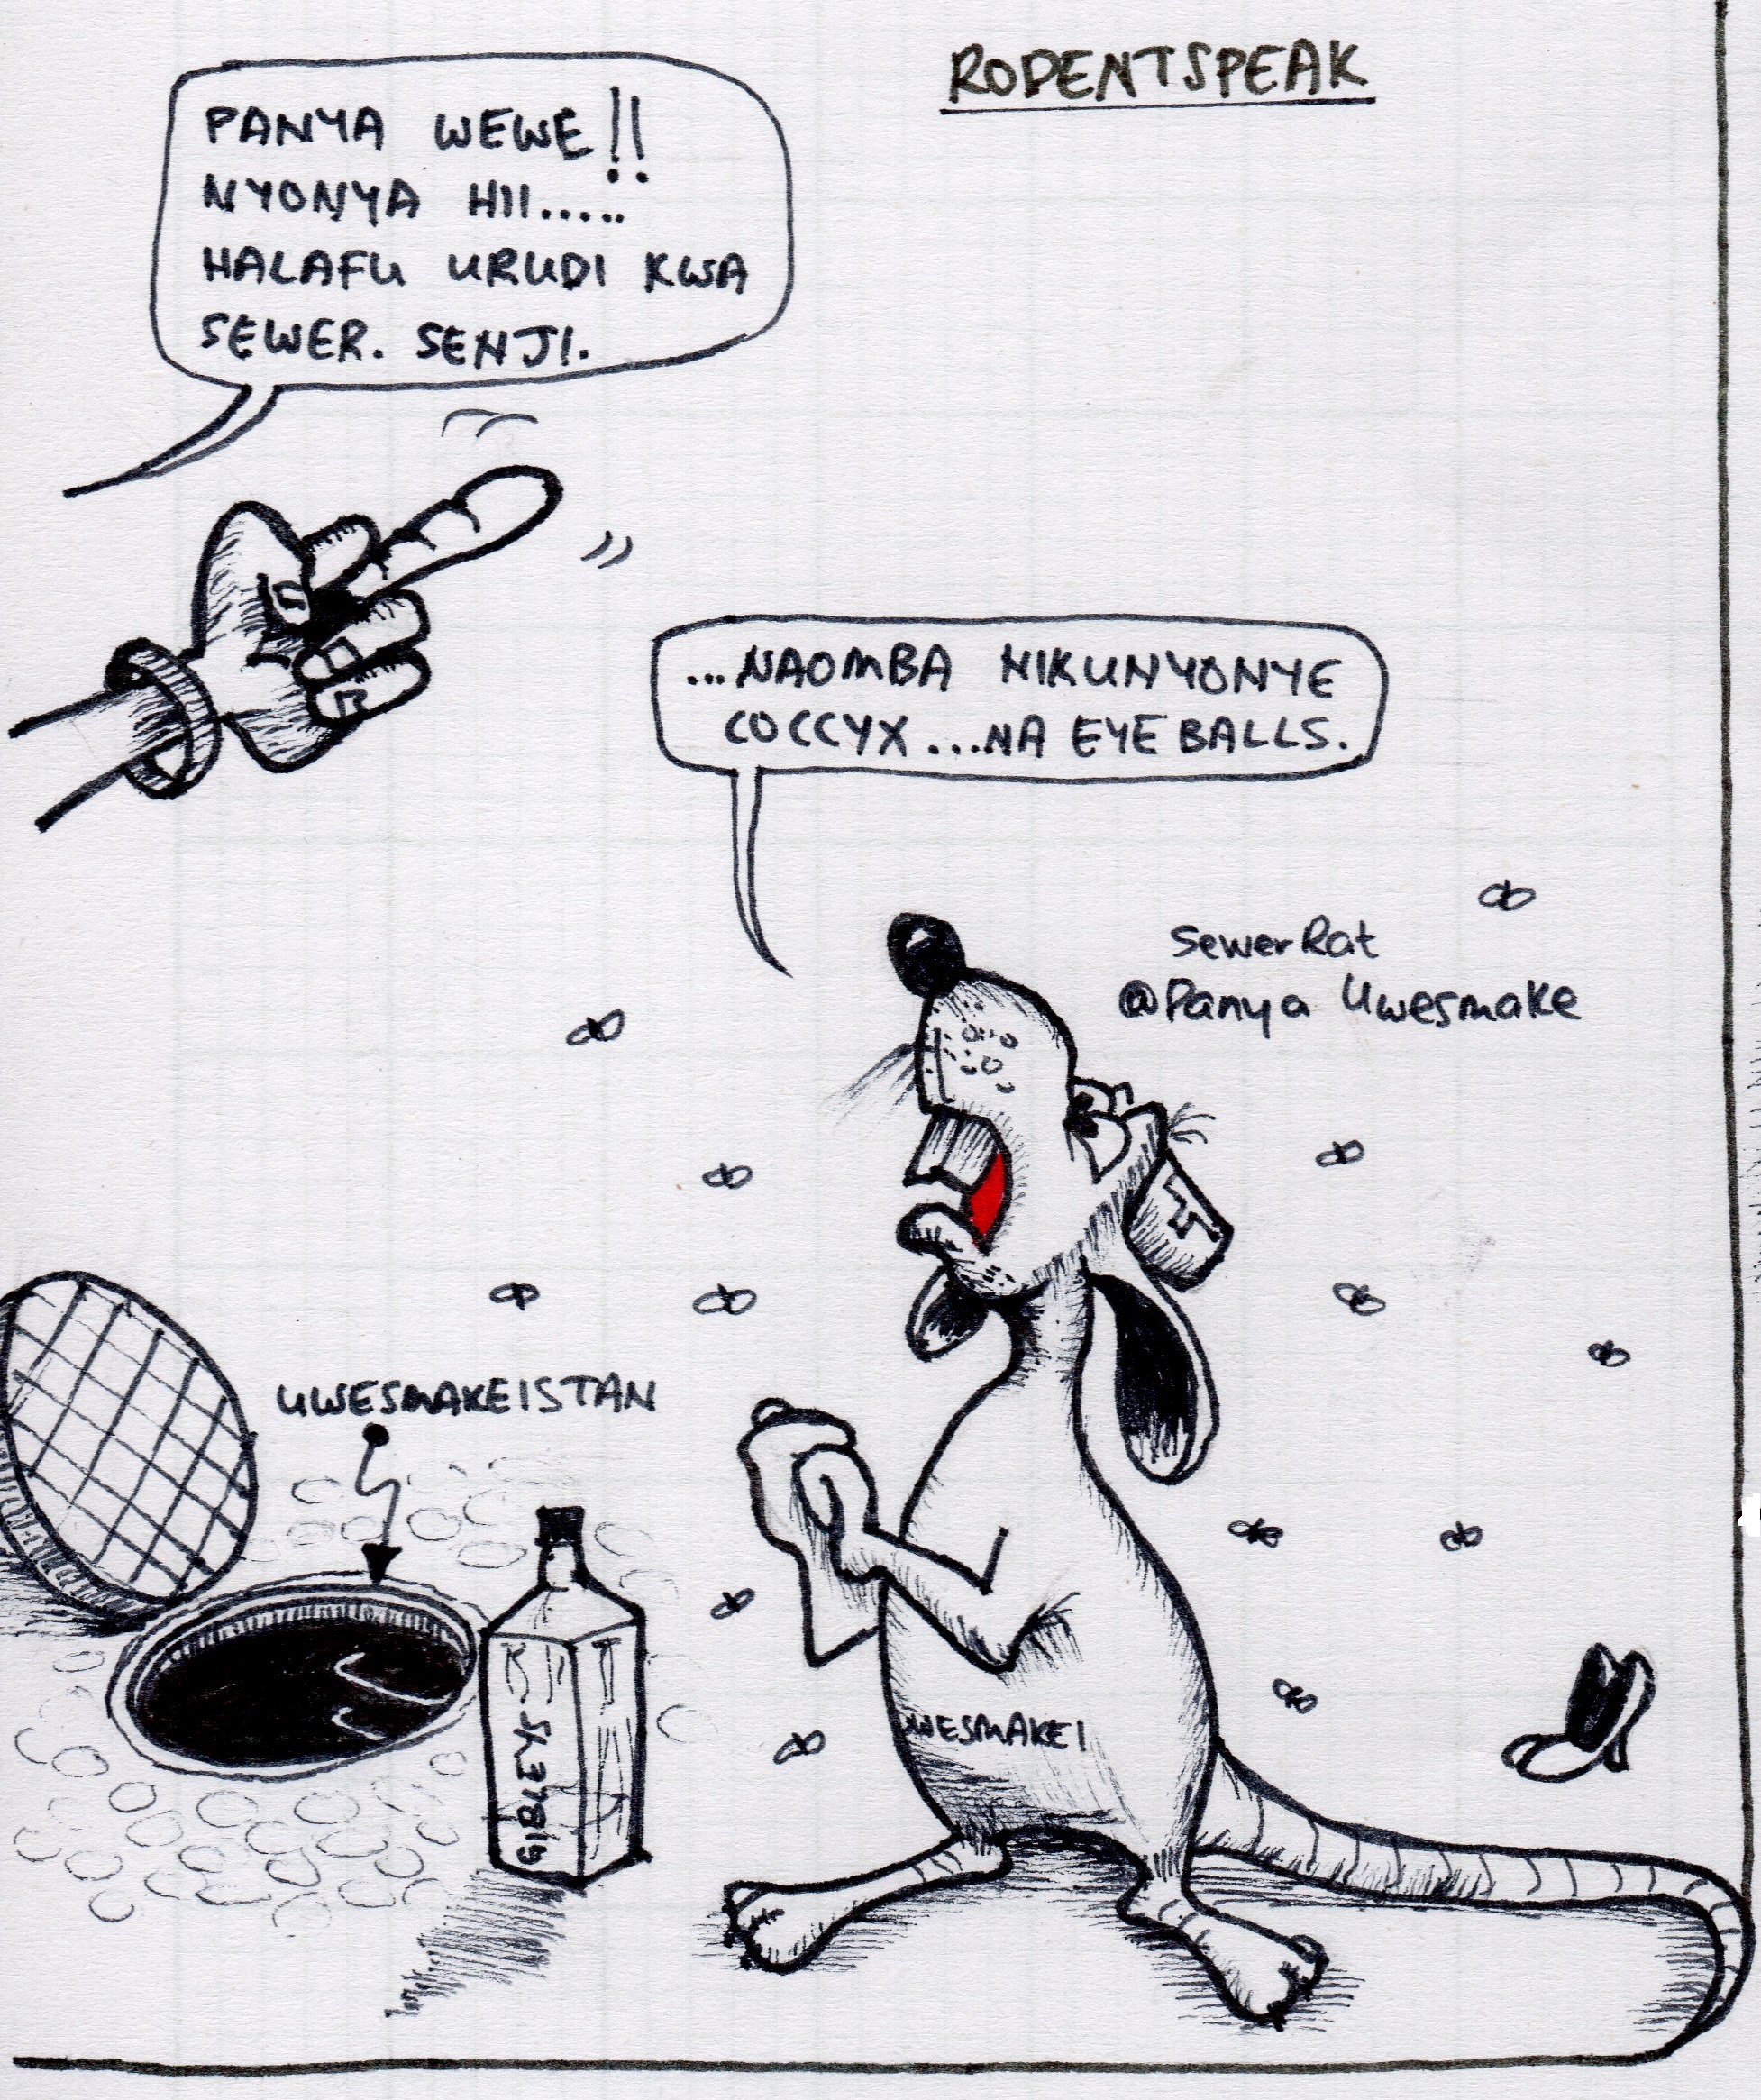 RODENTSPEAK
PANYA WEWE!!
NYONYA HII.....
HALAFU URUDI KWA
SEWER. SENJI.
...NAOMBA NIKUNYONYE
COCCYX...NA EYEBALLS.
SewerRat
@Panya Uwesmake
UWESMAKEISTAN
GIBLEYS
UWESMAKEI